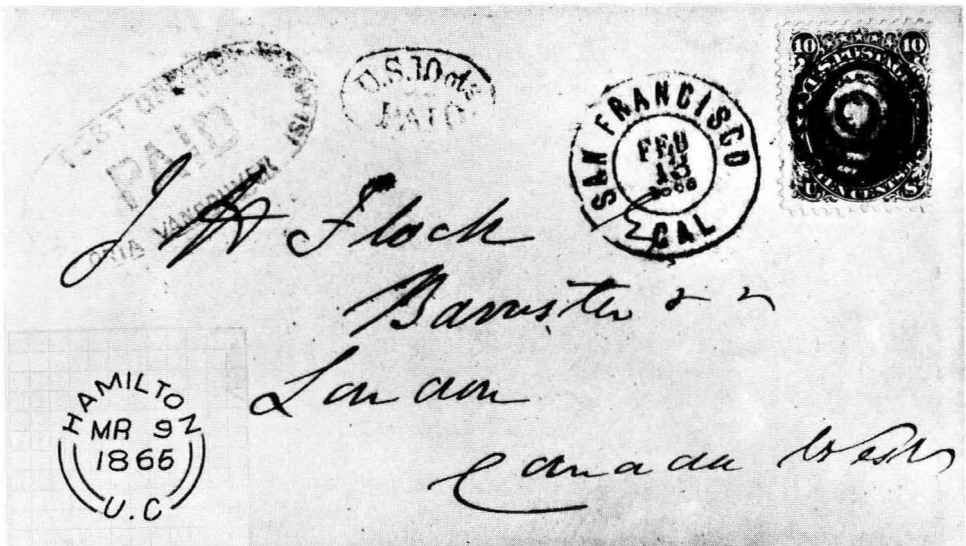 POST OFFICE
PAID
VANCOUVER
U.S. 10 cts
PAID
SAN FRANCISCO
FEB
CAL
10 10
U.S. POSTAGE
TEN CENTS
U S
J H Flock
Barrister & &
London
Canada West
HAMILTON
MR 9
1866
U.C